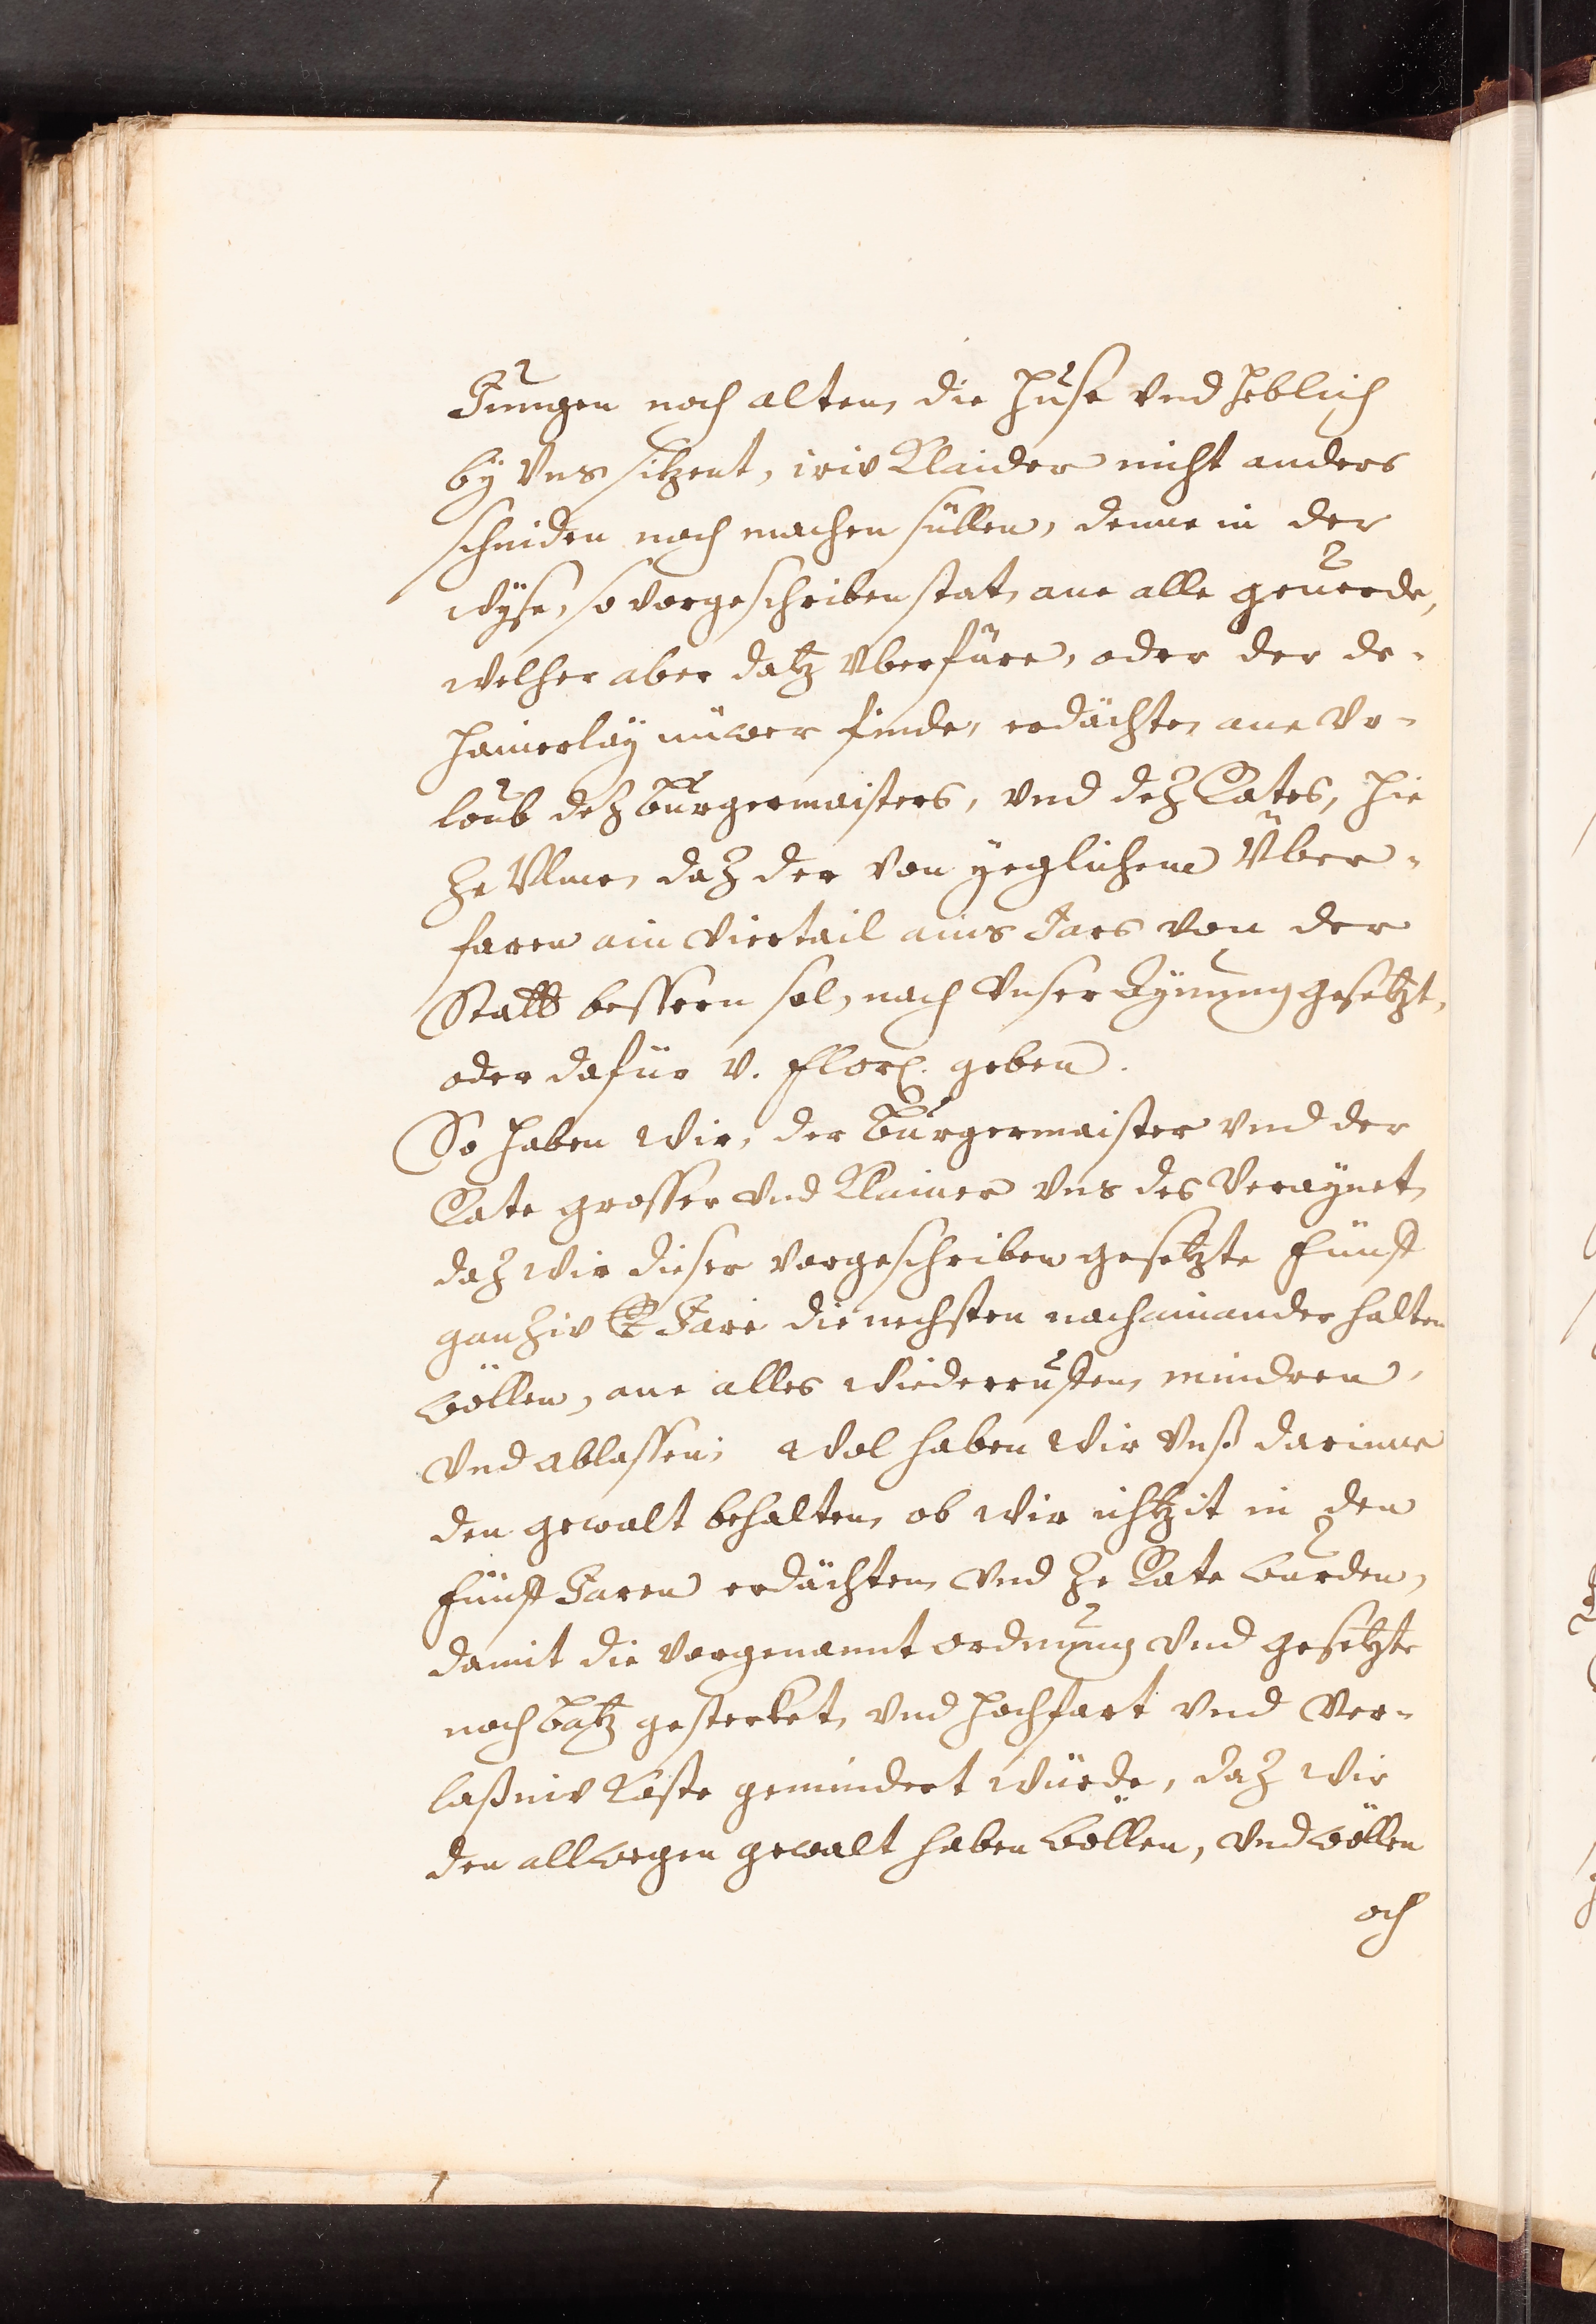 Jungen noch alten, die Huse vnd Heblich
by Vns sitzent, iriv Klaider nicht anders
schniden noch machen süllen, denne in der
wyse, so vorgeschriben stat, ane alle geuerde,
welher aber datz Vberfüre, oder der de-
hainerlay nüwer finde, erdächte, ane Vr-
loub deß Burgermaisters, vnd deß Rates, hie
ze Vlme, daz der von yeglichem Über-
faren ain viertail ains Jars von der
Statt bessern sol, nach Vnser Aynung gesetzt,
oder dafür v. flor. geben.
So haben Wir, der Burgermaister vnd der
Rate grosser vnd Klainer vns des Veraynet,
daz wir dieser vorgeschriben gesetzte fünff
ganziv Jare die nechsten nachainander halten
wöllen, ane alles Wiederrufften, mindren,
Vnd ablassen; Wol haben Wir Vnß darinne
den gewalt behalten, ob wir ichtzit in den
fünff Jaren erdächten, vnd ze Rate wurden,
damit die vorgenannt ordnung vnd gesetzte
noch batz gesterket, vnd hochfart vnd Ver-
laßniv Koste gemindert würde, daz wir
den allwegen gewalt haben wöllen, vnd wöllen
och